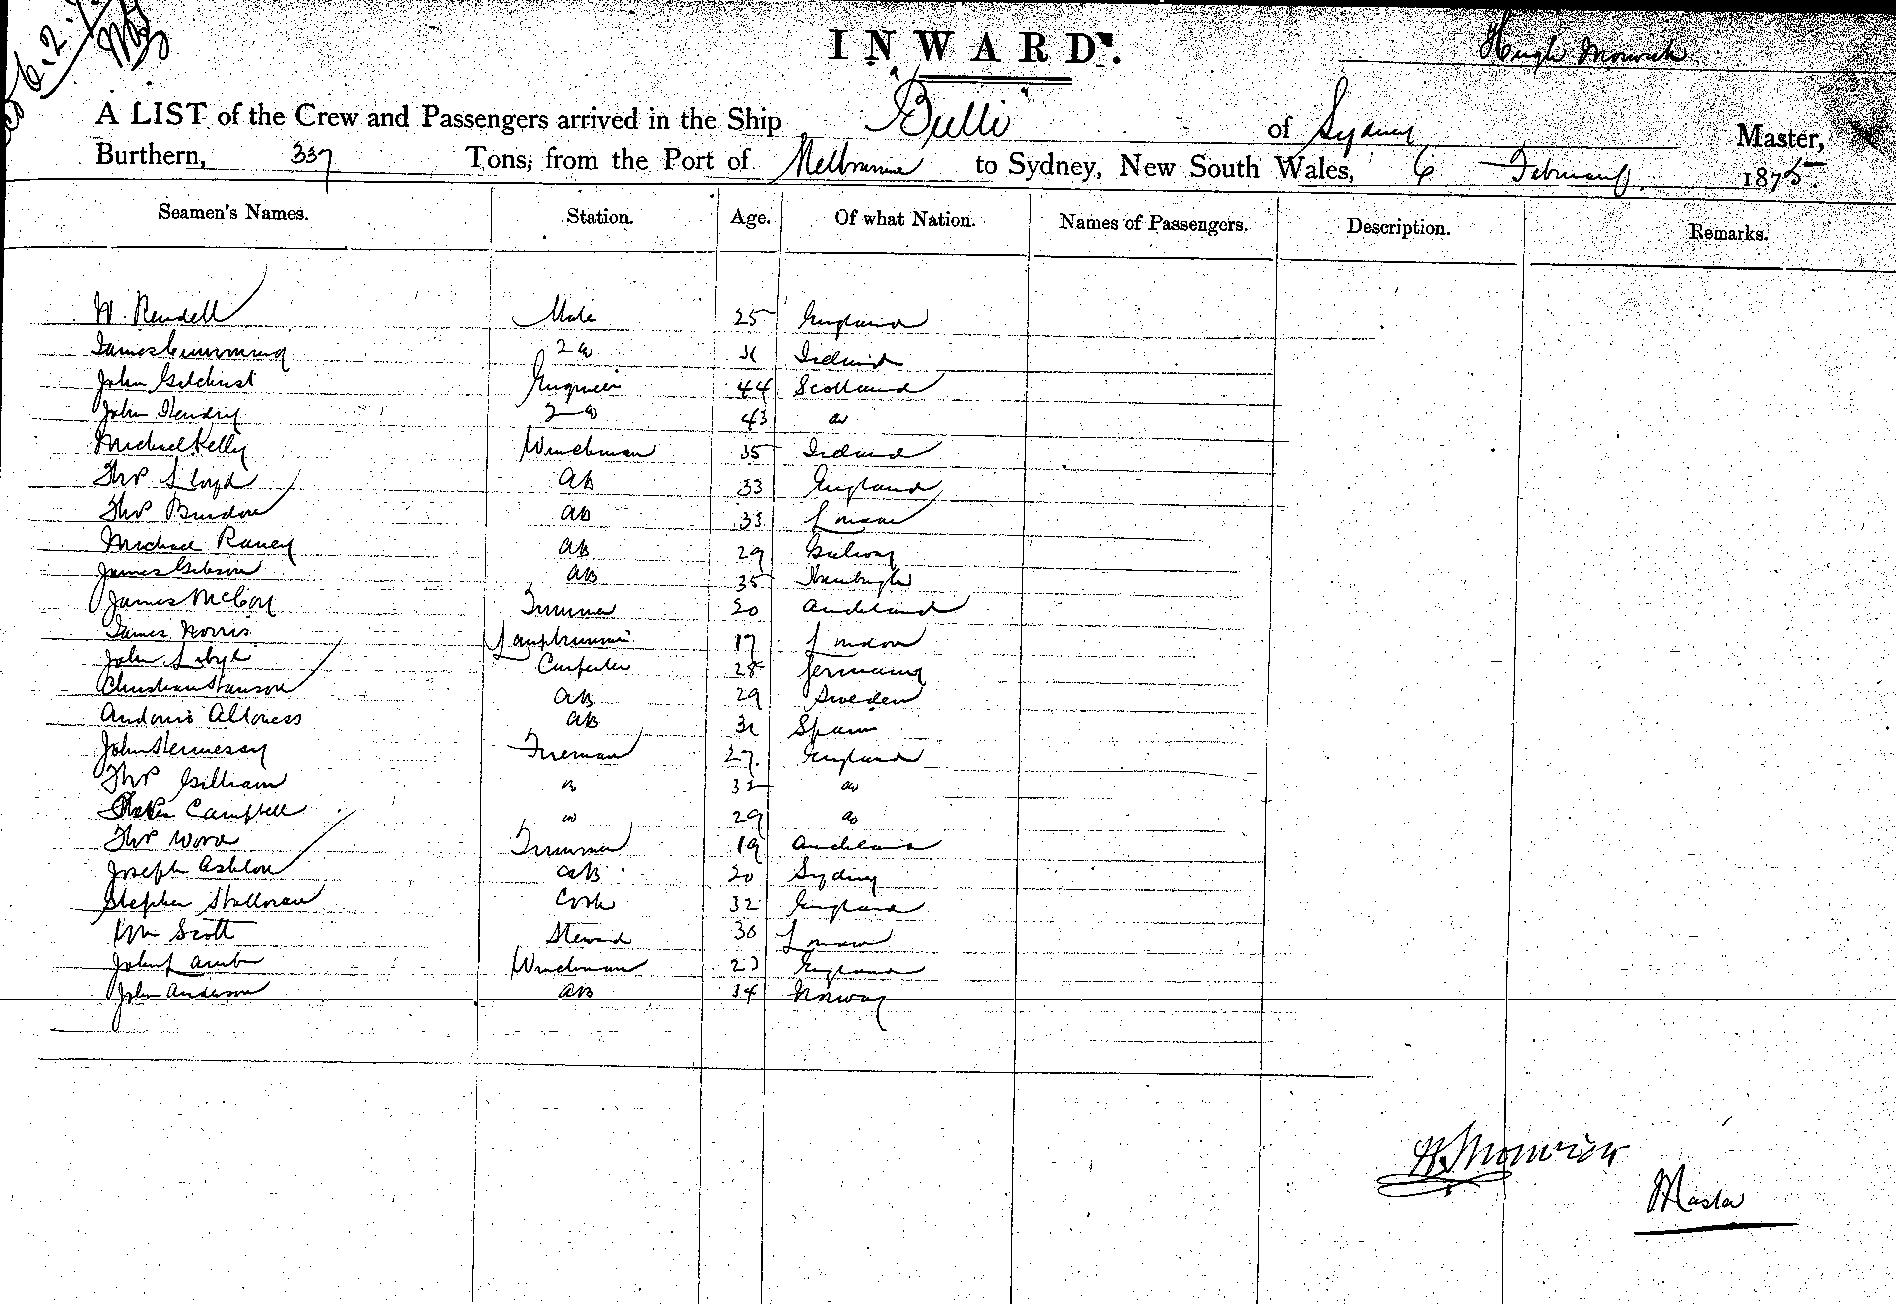 INWARD.
Hugh Monwick
A LIST of the Crew and Passengers arrived in the Ship "Bulli" of Sydney Master,
Burthern, 337 Tons, from the Port of Melbourne to Sydney, New South Wales, 6 February 1875.
Seamen's Names. Station. Age. Of what Nation. Names of Passengers. Description. Remarks.
W. Rendell Mate 25 England
James Cumming 2 do Ireland
John Gilchrist Engineer 44 Scotland
John Hendry 2 do 43 do
Michael Kelly Winchman 35 Ireland
Thos Lloyd AB 33 England
Thos Burdon AB 33 London
Michael Raney AB 29 Galway
James Gibson AB 35
James McCoy Trimmer 20 Auckland
James Norris Lamptrimmer 17 London
John Carpenter 28 Germany
Christian Hanson AB 29 Sweden
Andonio AB Spain
John Hennessy Fireman 27 England
Thos Gilliam do 32 do
Campbell do 29 do
Thos Wood Trimmer 19 Auckland
Joseph Ashton AB 20 Sydney
Stephen Halloran Cook 32 England
Wm Scott Steward 30 London
John Lamb Winchman 23 England
John Anderson AB 34 Norway
H. Monwick
Master